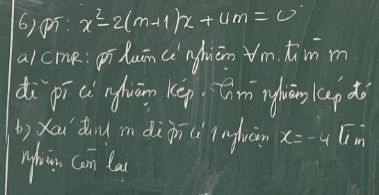 6) pT: x² - 2(m+1)x + 4m = 0
a/ CMR: pT luôn có nghiệm ∀m. tìm m
để pT có nghiệm kép. Tìm nghiệm kép đó
b) Xác định m để pT có 1 nghiệm x = -4 Tìm
nghiệm còn lại